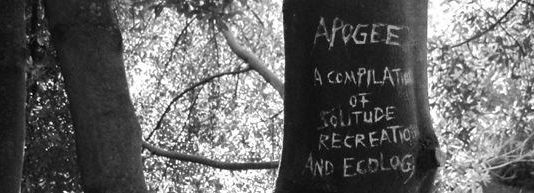 APOGEE
A COMPILATION
OF
SOLITUDE
RECREATION
AND ECOLOGY